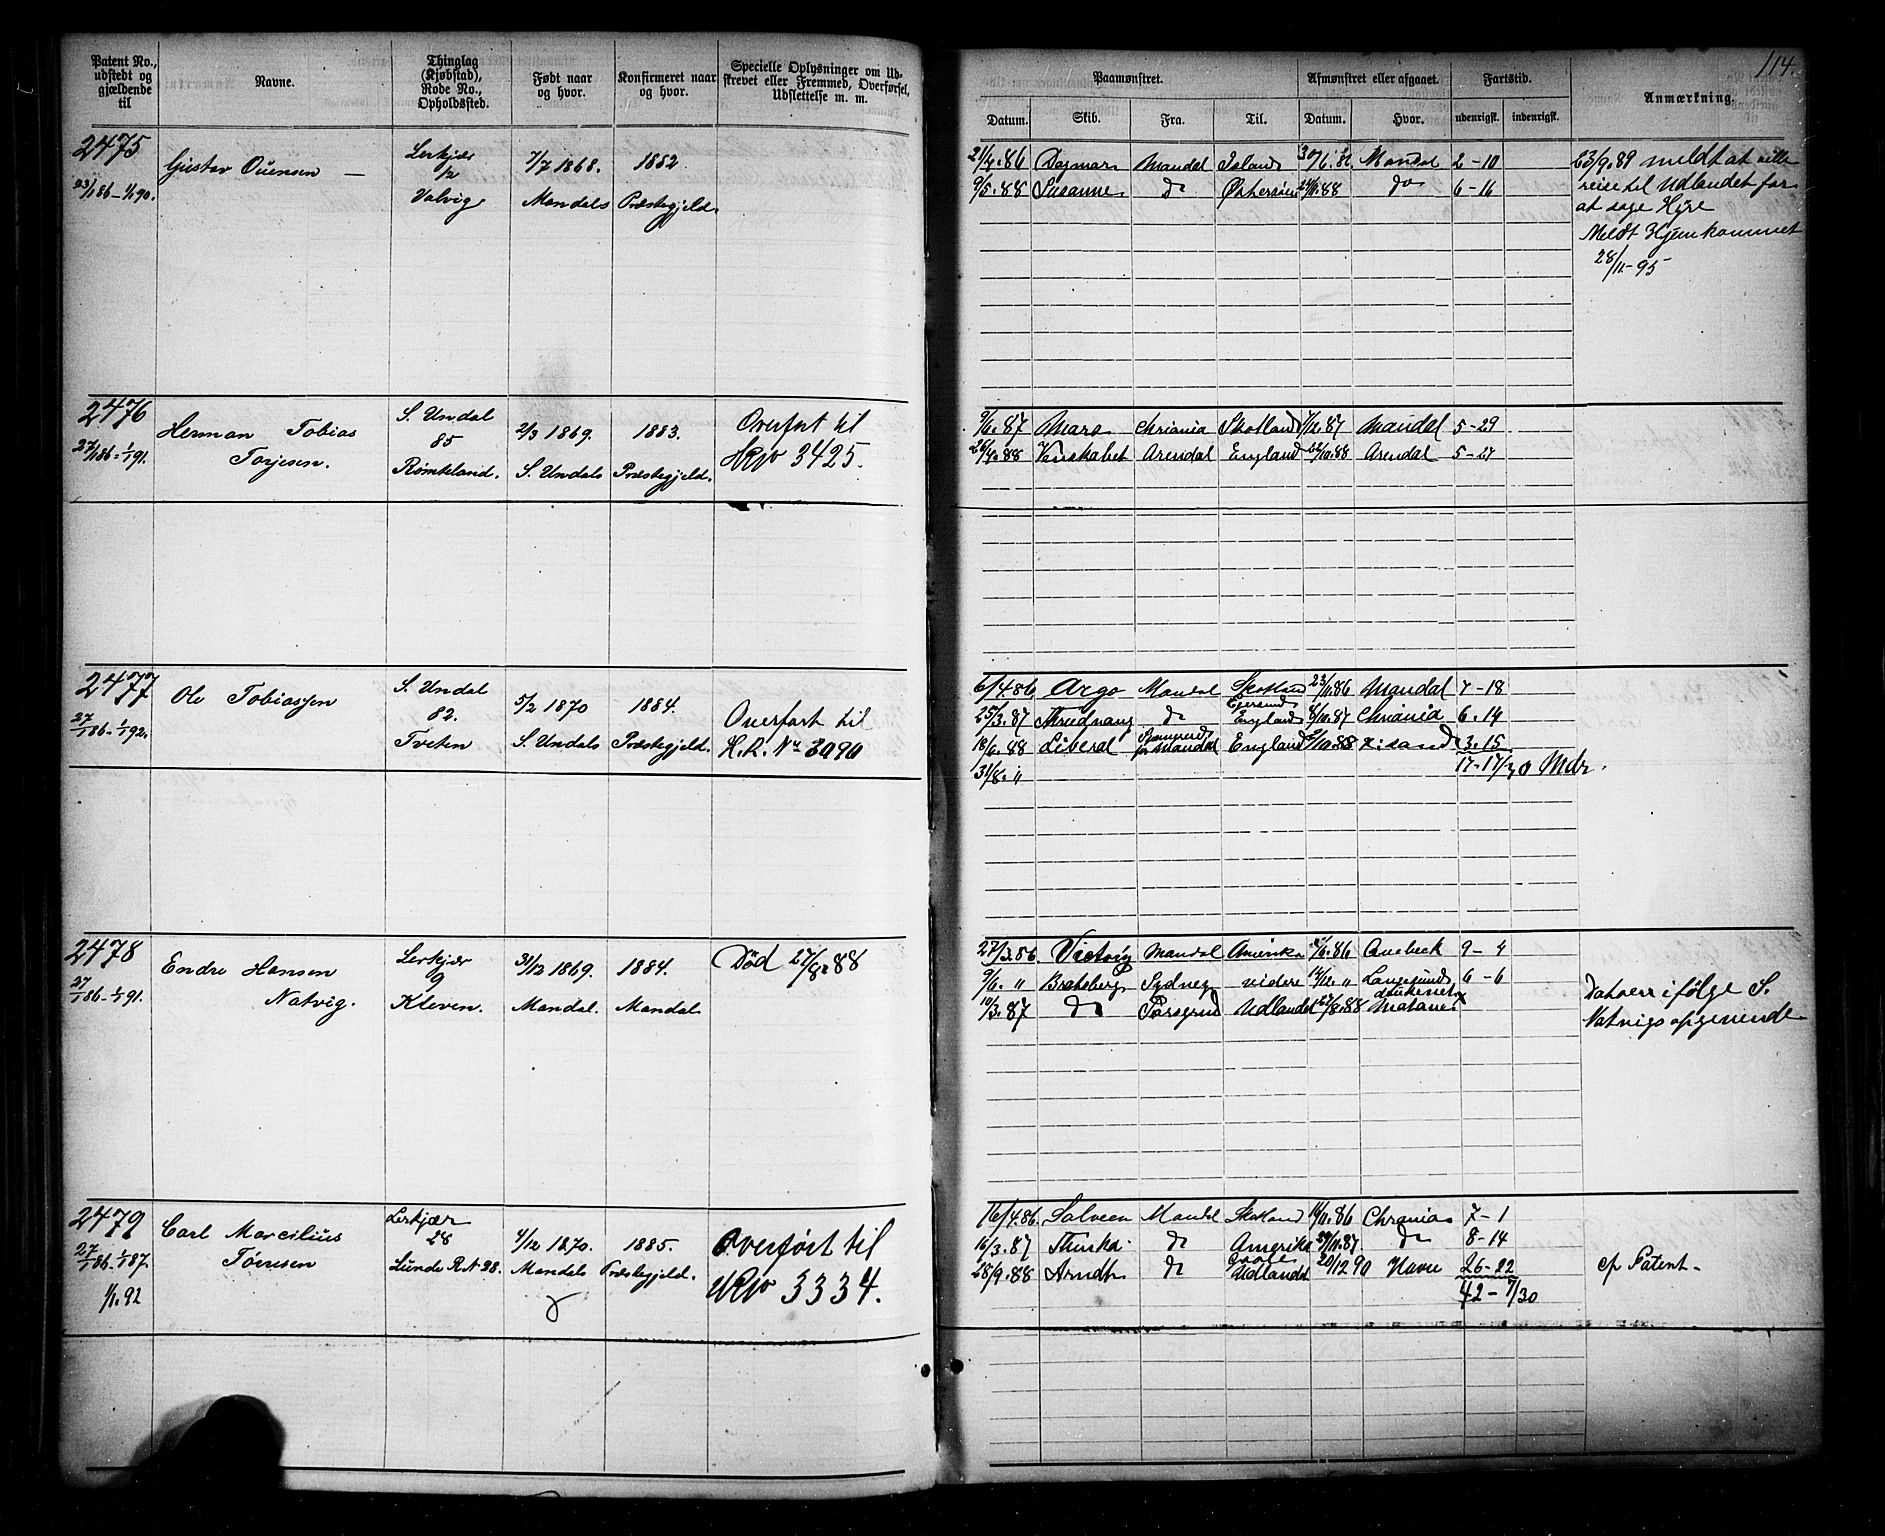 114.
Patent No., udstedt og gjældende til
Navne.
Thinglag (Kjøbstad), Rode No., Opholdssted.
Født naar og hvor.
Konfirmeret naar og hvor.
Specielle Oplysninger om Udskrevet eller Fremmed, Overførsel, Udslettelse m. m.
Paamønstret.
Afmønstret eller afgaaet.
Fartstid.
Anmærkning.
Datum. Skib. Fra. Til. Datum. Hvor. udenrigsk. indenrigsk.
2475 Lerkjær 7/7 1868. 1882
Gustav
23/1 86 – 1/1 90. Valvig Mandals Præstegjeld.
21/4.86 Dagmar Mandal Island Mandal 2 – 10
9/5.88 Susanne do 88 do 6 – 16
23/9.89 meldt at ville
reise til Udlandet for
at søge Hyre
Meldt Hjemkommet
28/11 – 95
2476 S. Undal 2/3 1869. 1883. Overført til
Herman Tobias 85 HRN 3425.
Torjesen.
27/1 86 – 1/1 91. S. Undals Præstegjeld.
9/6.87 Mars Chriania Skotland 7/12.87 Mandal 5 – 29
26/4.88 Venskabet Arendal England 22/10.88 Arendal 5 – 27
2477 S. Undal 5/2 1870 1884.
Ole Tobiassen 82. Overført til
27/1 86 – 1/1 92. Tveten S. Undals Præstegjeld. H.R. Nr 3090
6/4.86 Argo Mandal Skotland 23/11.86 Mandal 7 – 18
Egersund
25/3.87 Thrudvang do England 8/10.87 Chriania 6. 14
18/6.88 Liberal Mandal England /10.88 X:sand 3. 15
31/8. " 17 – 17/30 Mdr.
2478 Lerkjær 31/12 1869. 1884. Død 27/8.88
Endre Hansen 9
27/1 86 – 1/1 91. Natvig. Kleven. Mandal. Mandal
27/3.86 Victoria Mandal Amerika /6.86 Quebeck 9 – 4
9/6. " Bratsberg Sydney videre 14/12. " Langesund 6 – 6
druknet
10/3.87 do Porsgrund Udlandet 22/8.88 Matane
ifølge S.
Natvigs opgivende
2479 Lerkjær 4/12 1870. 1885. Overført til
Carl Marcilius 28
Tønesen
27/1 86 – 1/1 87. Lunde R.N 28. Mandals Præstegjeld. HRN 3334.
1/1.92
16/4.86. Solveen Mandal Skotland 14/11.86 Chrania 7 – 1
16/3.87 do Amerika 29/11.87 do 8 – 14
28/9.88 Arndt do Udlandet 20/12 90 Havre 26 – 22
42 – 7/30
cf Patent –